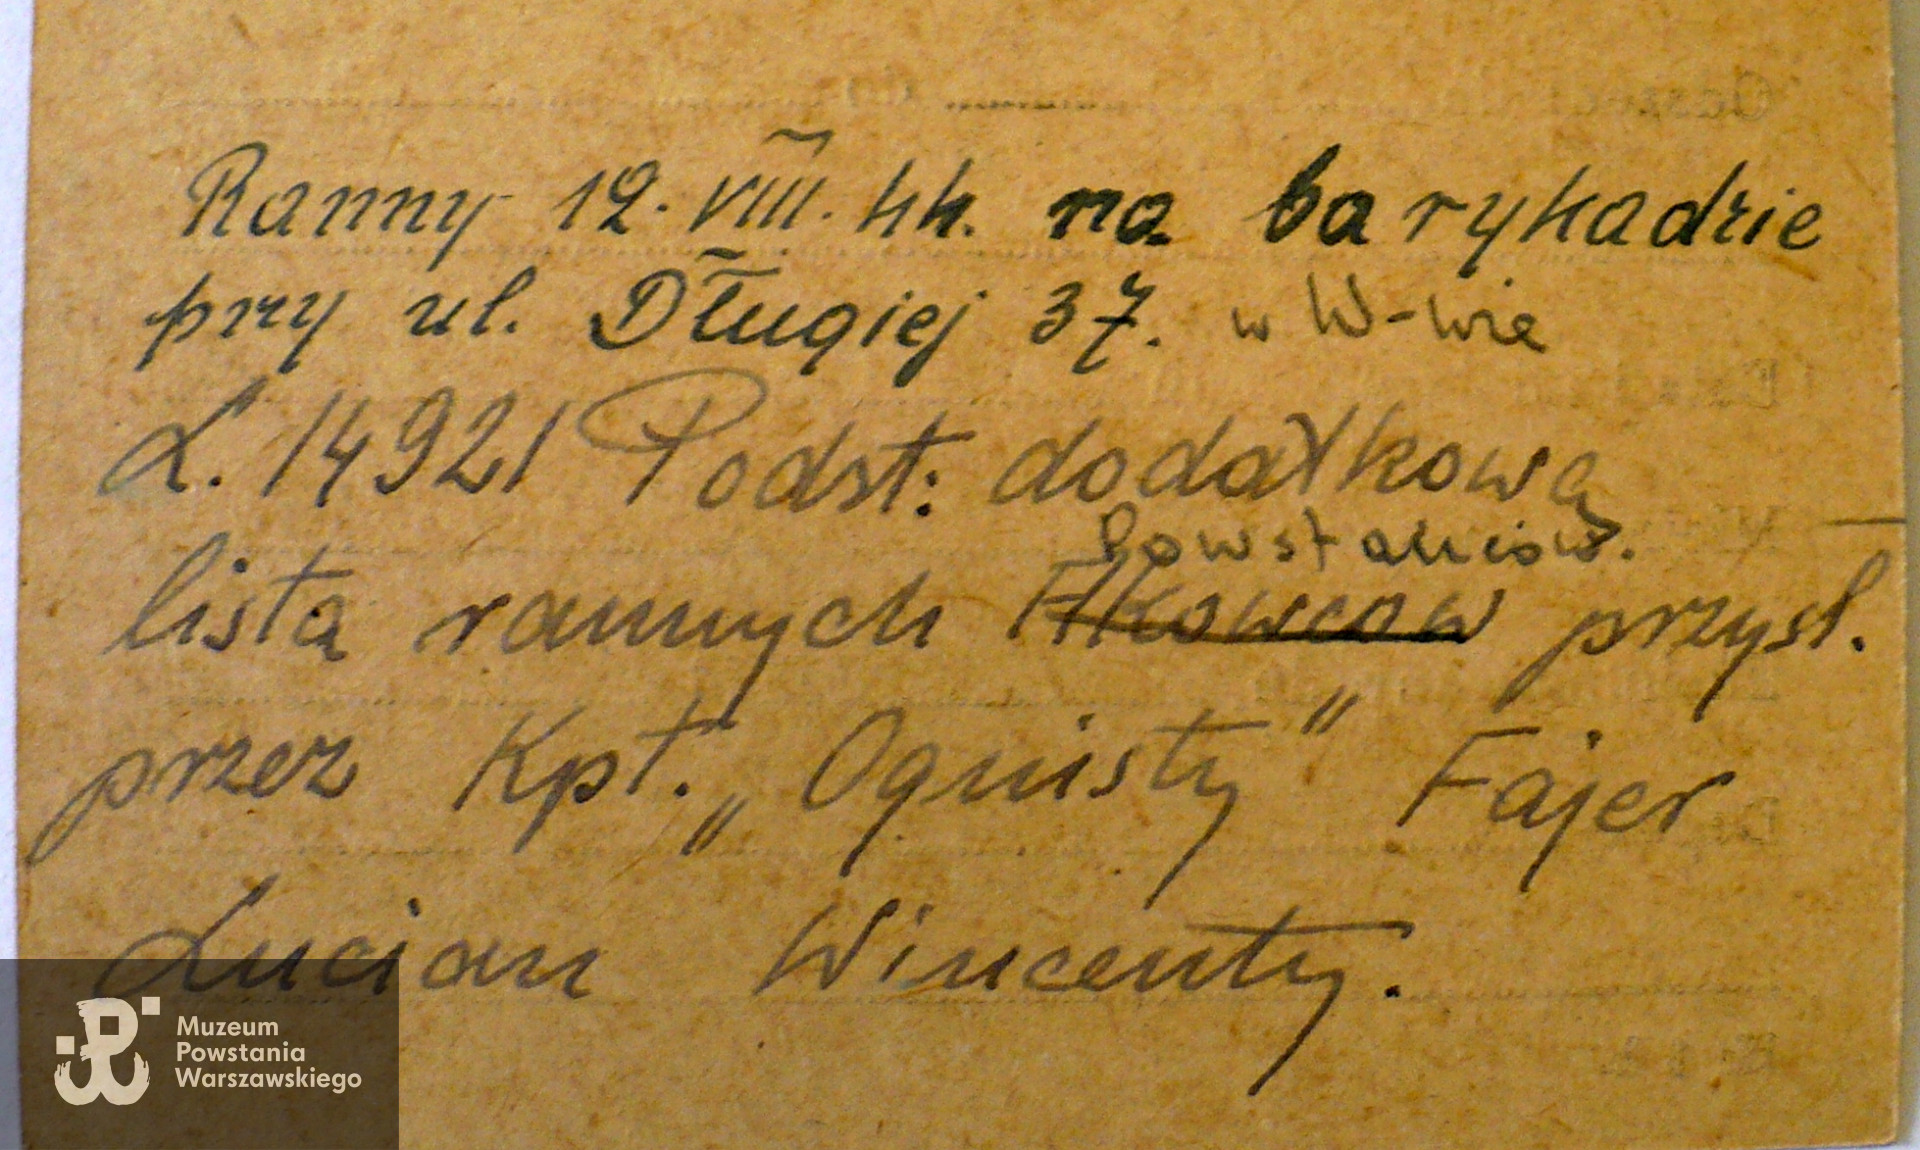 Ranny 12. VIII. 44. na barykadzie
przy ul. Długiej 37. w W-wie
L. 14921 Podst: dodatkowa
Powstańców.
lista rannych AKowców przysł.
przez Kpt. „Ognisty" Fajer
Lucian Wincenty.
Muzeum
Powstania
Warszawskiego